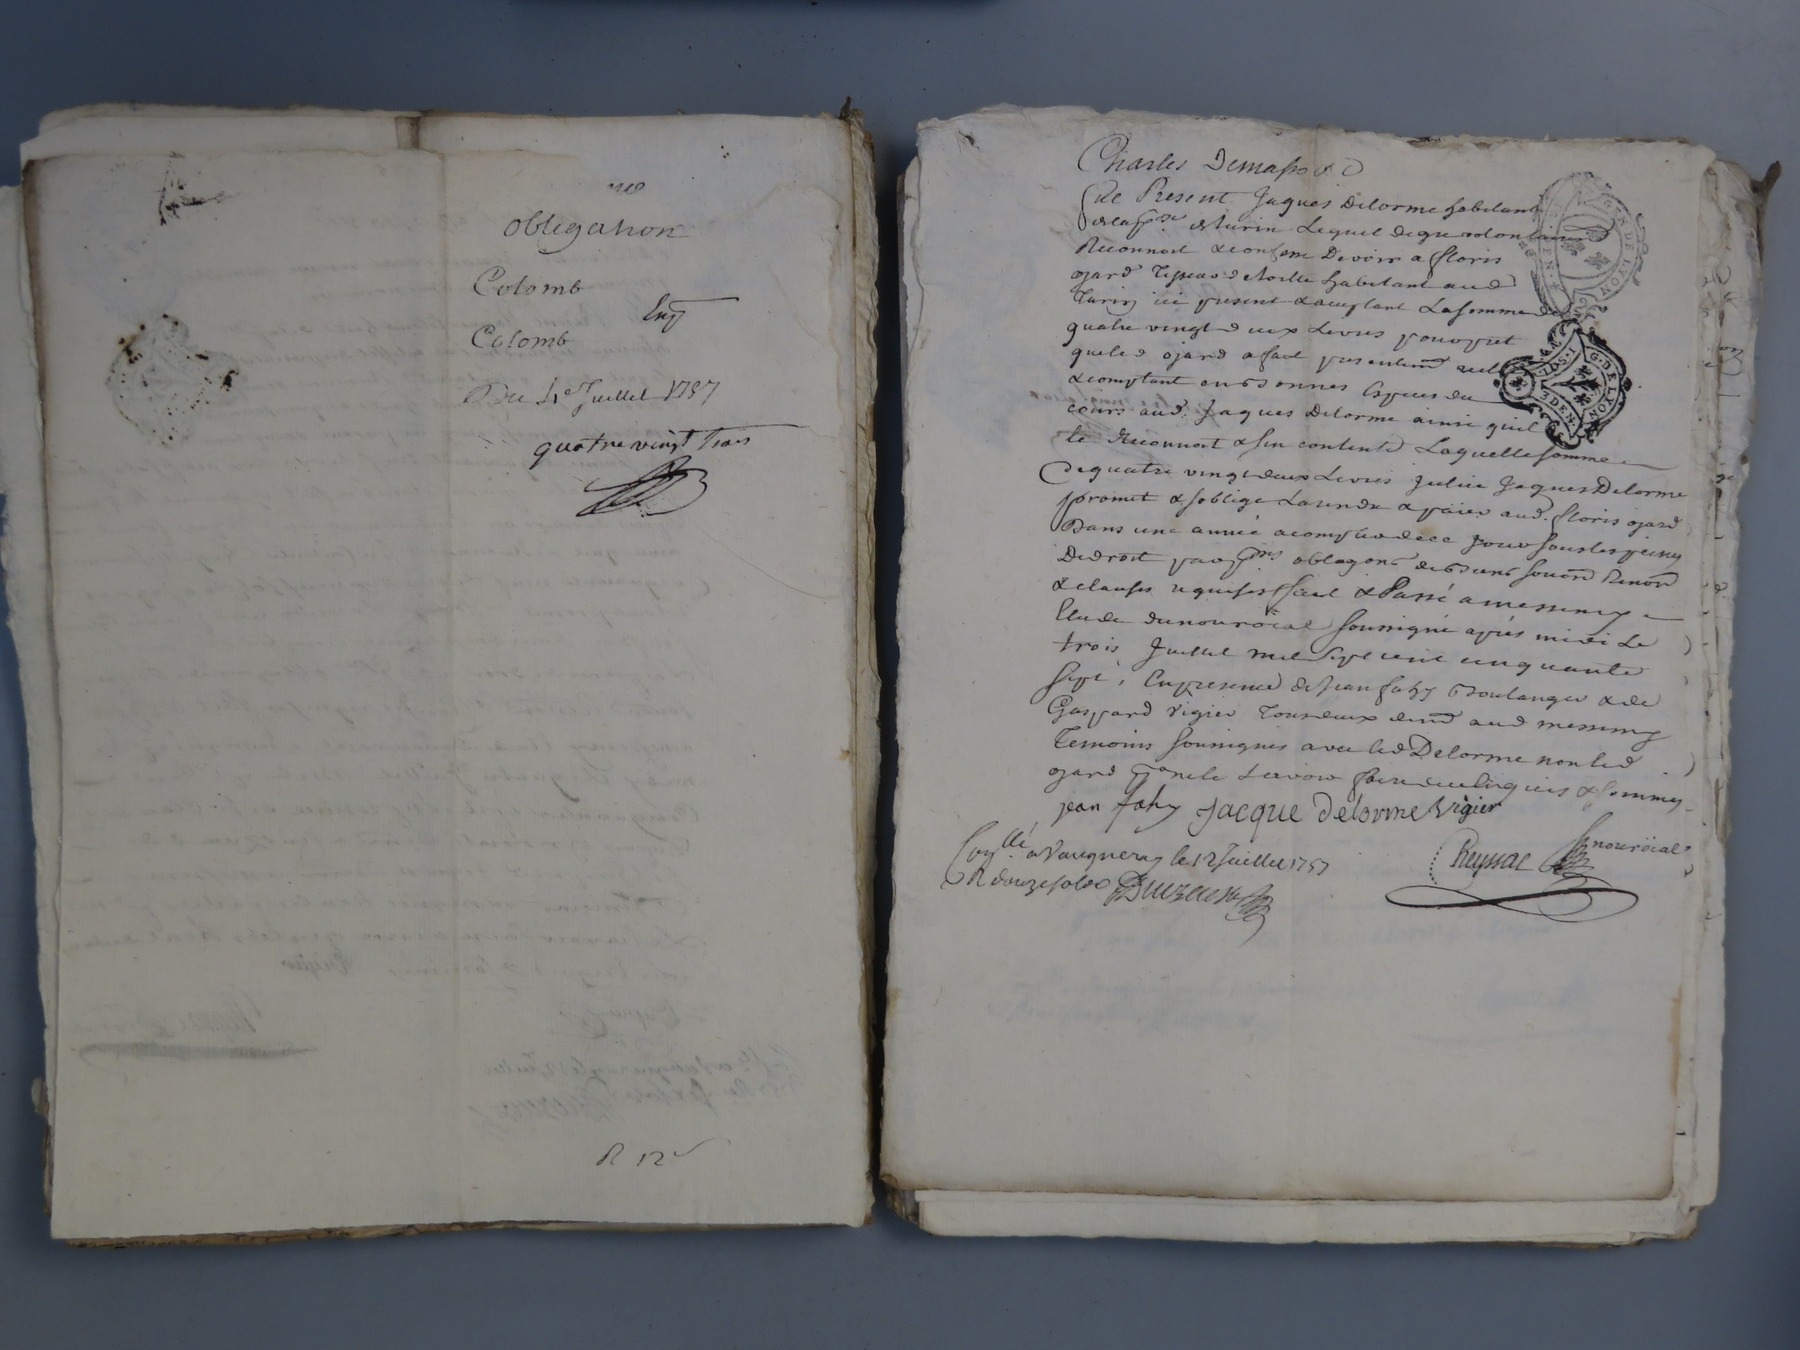 obligation
Colomb
Colomb
Du 4e Juillet 1757
quatre vingt trois
R 12s
Charles Demasso &
Fut Present Jaques Delorme habitant
de la psse de turin Lequel de gre volontaire
Reconnoit & confesse Devoir a floris
ojard Tisseur de toille habitant aud
turin ici present & acceptant La somme de
quatre vingt deux Livres pour pret
que led ojard a fait presentemt reel
& comptant en bonnes Especes du
cours aud. Jaques Delorme ainsi quil
le Reconnoit & sen contente Laquelle somme
de quatre vingt deux Livres Jcelui Jaques Delorme
promet & soblige La rendre & paier aud. floris ojard
Dans une année a compter de ce jour sous les peines
De droit par pns obligaons de biens soumons Renons
& clauses requises fait & Passé a messimy
Etude du no. roial soussigné après midi Le
trois Juillet mil sept cent cinquante
sept, En presence de Jean fahy Boulanger & de
Gaspard Vigier demt aud messimy
Temoins soussignes avec led Delorme non led
ojard pour ne le scavoir faire de ce Enquis & sommés
jean fahy Jacque Delorme Vigier
Conllé a Vaugneray le 12 Juillet 1757
R douze sols
Reyssac no. roial
G. DE LYON
3 DEN